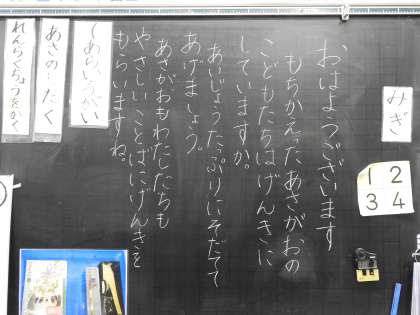 みぎ
1 2
3 4
おはようございます
もちかえったあさがおの
こどもたちはげんきに
していますか。
あいじょうたっぷりにそだてて
あげましょう。
あさがおもわたしたちも
やさしいことばにげんきを
もらいますね。
てあらいうがい
あさの…たく
れんらくちょうをかく